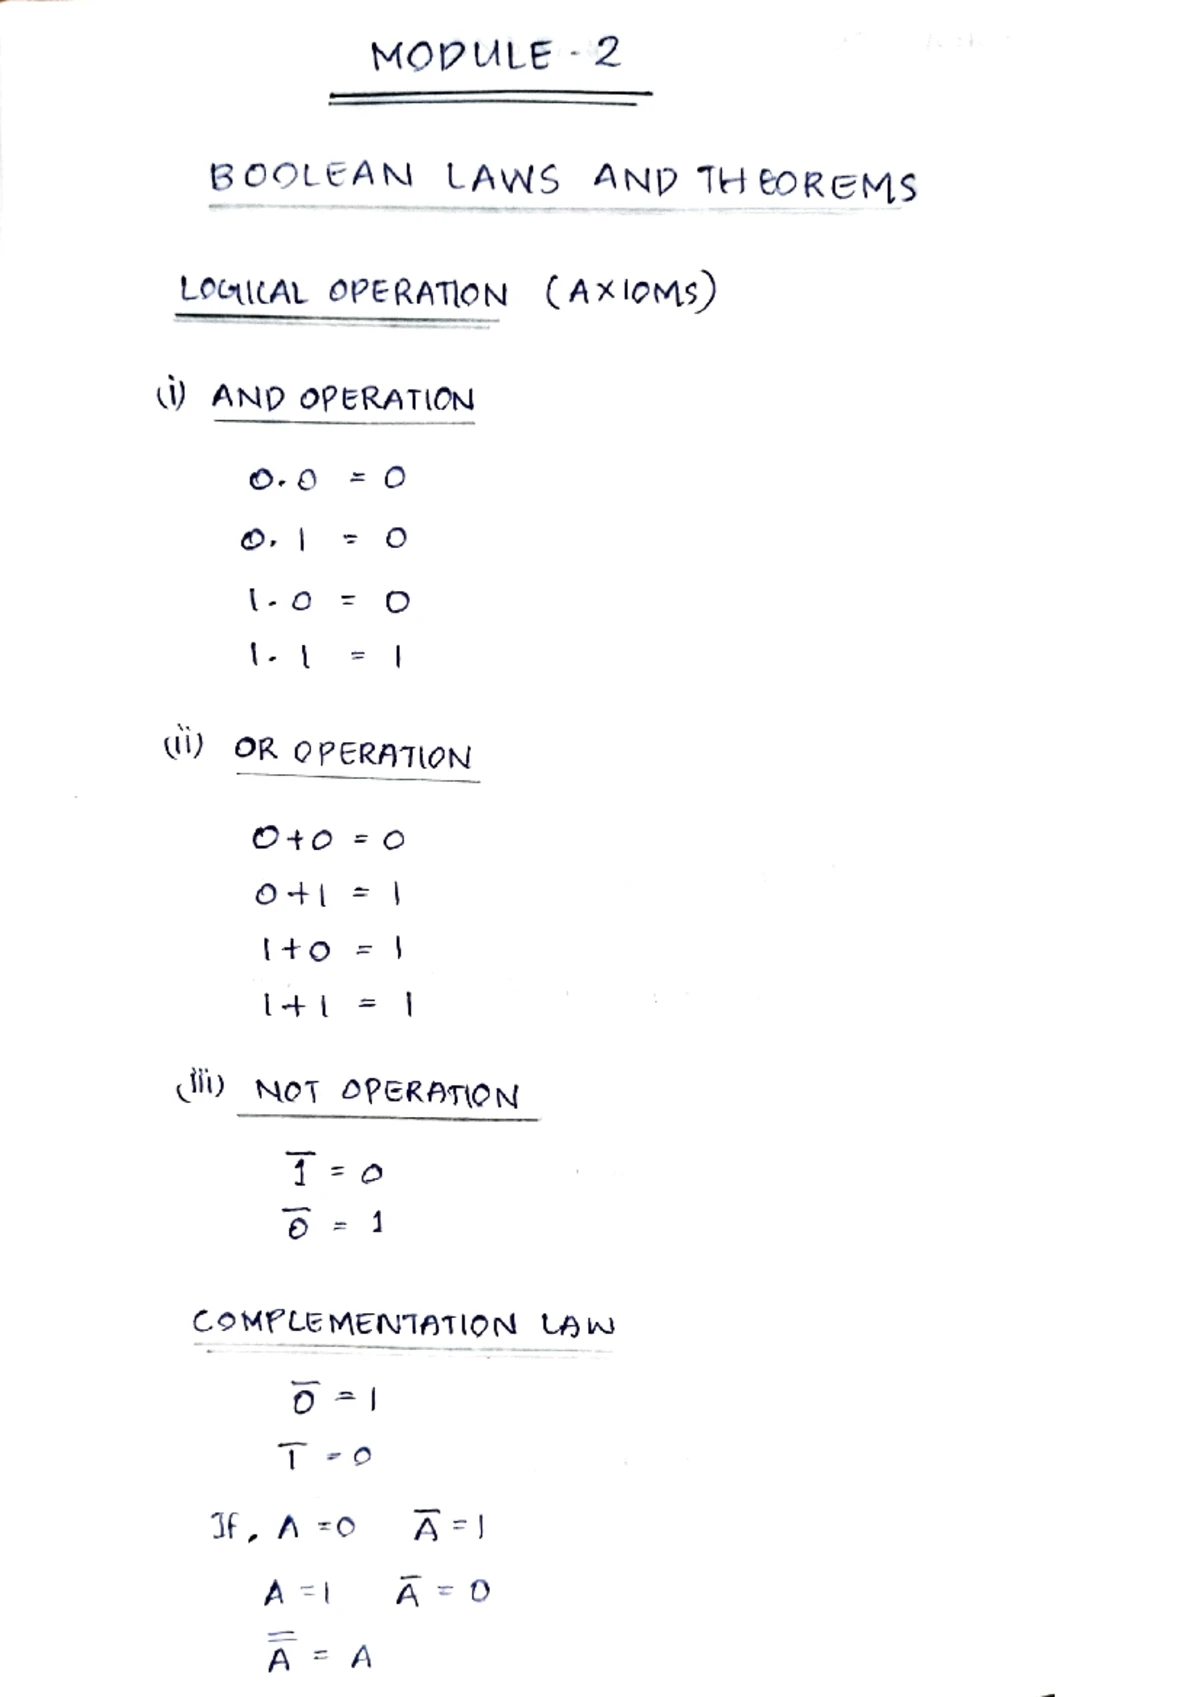 MODULE - 2
BOOLEAN LAWS AND THEOREMS
LOGICAL OPERATION (AXIOMS)
(i) AND OPERATION
0.0 = 0
0.1 = 0
1.0 = 0
1.1 = 1
(ii) OR OPERATION
0+0 = 0
0+1 = 1
1+0 = 1
1+1 = 1
(iii) NOT OPERATION
1̅ = 0
0̅ = 1
COMPLEMENTATION LAW
0̅ = 1
1̅ = 0
If, A = 0 A̅ = 1
A = 1 A̅ = 0
A̿ = A